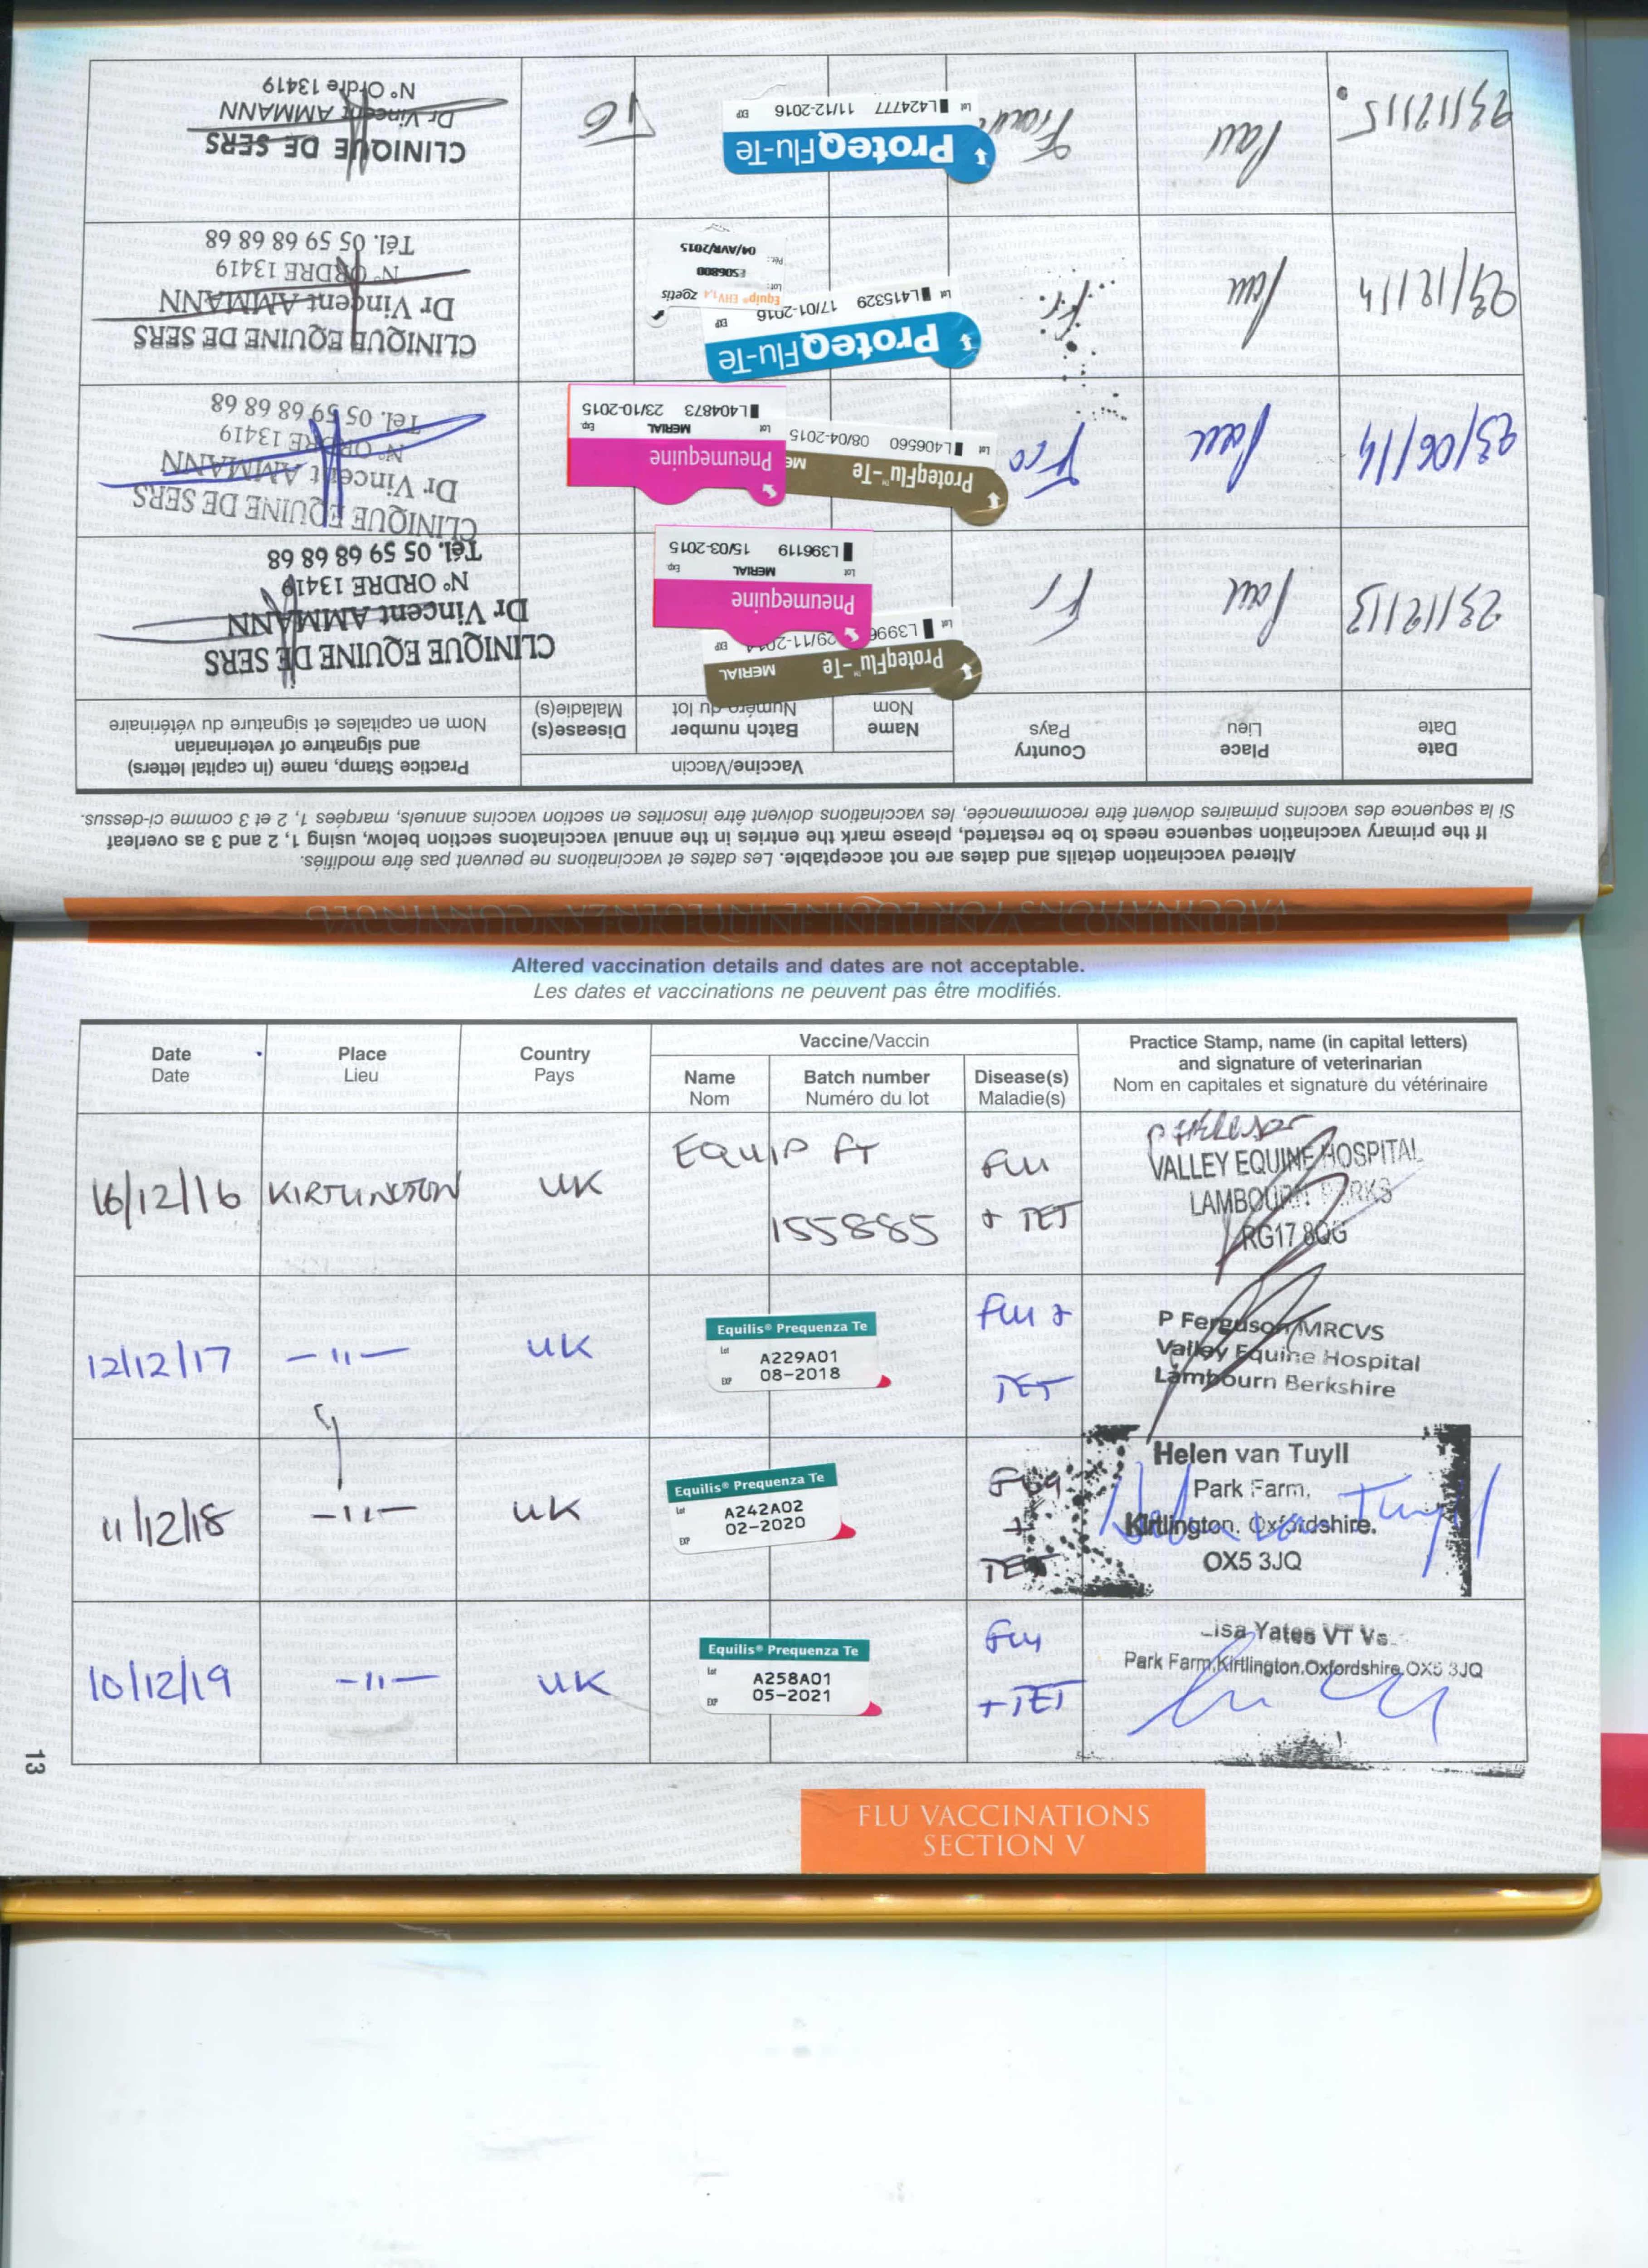 VACCINATIONS FOR EQUINE INFLUENZA – CONTINUED
Altered vaccination details and dates are not acceptable. Les dates et vaccinations ne peuvent pas être modifiés.
If the primary vaccination sequence needs to be restarted, please mark the entries in the annual vaccinatons section below, using 1, 2 and 3 as overleaf
Si la sequence des vaccins primaires doivent être recommencée, les vaccinations doivent être inscrites en section vaccins annuels, marqées 1, 2 et 3 comme ci-dessus.
Date
Date
Place
Lieu
Country
Pays
Vaccine/Vaccin
Name
Nom
Batch number
Numéro du lot
Disease(s)
Maladie(s)
Practice Stamp, name (in capital letters)
and signature of veterinarian
Nom en capitales et signature du vétérinaire
23/12/13
Pau
Fr
ProteqFlu™-Te MERIAL
Lot L3996 29/11-2014 EXP
Pneumequine
Lot MERIAL Exp
L396119 15/03-2015
CLINIQUE EQUINE DE SERS
Dr Vincent AMMANN
N° ORDRE 13419
Tél. 05 59 68 68 68
23/06/14
Pau
Fra
ProteqFlu™-Te ME
Lot L406560 08/04-2015
Pneumequine
Lot MERIAL Exp
L404873 23/10-2015
CLINIQUE EQUINE DE SERS
Dr Vincent AMMANN
N° ORDRE 13419
Tél. 05 59 68 68 68
23/12/14
Pau
Fr
ProteqFlu-Te
Lot L415329 17/01-2016 EXP
Equip® EHV1,4 zoetis
Lot:
ES06800
Pér.:
04/AVR/2015
CLINIQUE EQUINE DE SERS
Dr Vincent AMMANN
N° ORDRE 13419
Tél. 05 59 68 68 68
23/12/15
Pau
France
ProteqFlu-Te
Lot L424777 11/12-2016 EXP
TG
CLINIQUE DE SERS
Dr Vincent AMMANN
N° Ordre 13419
Altered vaccination details and dates are not acceptable.
Les dates et vaccinations ne peuvent pas être modifiés.
Date
Date
Place
Lieu
Country
Pays
Vaccine/Vaccin
Name
Nom
Batch number
Numéro du lot
Disease(s)
Maladie(s)
Practice Stamp, name (in capital letters)
and signature of veterinarian
Nom en capitales et signature du vétérinaire
16/12/16
KIRTLINGTON
UK
EQUIP FT
155885
FLU
+ TET
P FERGUSON
VALLEY EQUINE HOSPITAL
LAMBOURN BERKS
RG17 8QG
12/12/17
-11-
UK
Equilis® Prequenza Te
Lot A229A01
EXP 08-2018
FLU +
TET
P Ferguson MRCVS
Valley Equine Hospital
Lambourn Berkshire
11/12/18
-11-
UK
Equilis® Prequenza Te
Lot A242A02
EXP 02-2020
FLU
+
TET
Helen van Tuyll
Park Farm,
Kirtlington, Oxfordshire.
OX5 3JQ
10/12/19
-11-
UK
Equilis® Prequenza Te
Lot A258A01
EXP 05-2021
FLU
+ TET
Lisa Yates VT Vs
Park Farm,Kirtlington,Oxfordshire,OX5 3JQ
13
FLU VACCINATIONS
SECTION V